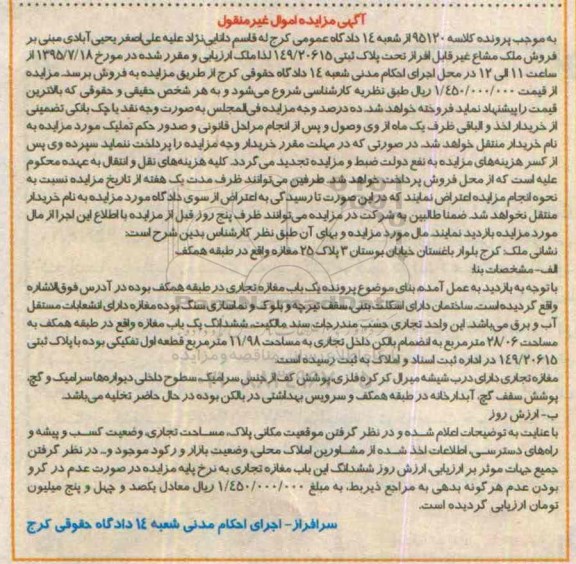 آگهی مزایده اموال غیرمنقول
به موجب پرونده کلاسه ۹۵۱۲۰ از شعبه ۱۴ دادگاه عمومی کرج له قاسم دانایی‌نژاد علیه علی‌اصغر یحیی‌آبادی مبنی بر
فروش ملک مشاع غیر قابل افراز تحت پلاک ثبتی ۱۴۹/۲۰۶۱۵ لذا ملک ارزیابی و مقرر شده در مورخ ۱۳۹۵/۷/۱۸ از
ساعت ۱۱ الی ۱۲ در محل اجرای احکام مدنی شعبه ۱۴ دادگاه حقوقی کرج از طریق مزایده به فروش برسد. مزایده
از قیمت ۱/۴۵۰/۰۰۰/۰۰۰ ریال طبق نظریه کارشناسی شروع می‌شود و به هر شخص حقیقی و حقوقی که بالاترین
قیمت را پیشنهاد نماید فروخته خواهد شد. ده درصد وجه مزایده فی‌المجلس به صورت وجه نقد یا چک بانکی تضمینی
از خریدار اخذ و الباقی ظرف یک ماه از وی وصول و پس از انجام مراحل قانونی و صدور حکم تملیک مورد مزایده به
نام خریدار منتقل خواهد شد. در صورتی که در مهلت مقرر خریدار وجه مزایده را پرداخت ننماید سپرده وی پس
از کسر هزینه‌های مزایده به نفع دولت ضبط و مزایده تجدید می گردد. کلیه هزینه‌های نقل و انتقال به عهده محکوم
علیه است که از محل فروش پرداخت خواهد شد. طرفین می‌توانند ظرف مدت یک هفته از تاریخ مزایده نسبت به
نحوه انجام مزایده اعتراض نمایند که در این صورت تا رسیدگی به اعتراض از سوی دادگاه مورد مزایده به نام خریدار
منتقل نخواهد شد. ضمنا طالبین به شرکت در مزایده می‌توانند ظرف پنج روز قبل از مزایده با اطلاع این اجرا از مال
مورد مزایده بازدید نمایند. مال مورد مزایده و بهای آن طبق نظر کارشناس بدین شرح است:
نشانی ملک: کرج بلوار باغستان خیابان بوستان ۳ پلاک ۲۵ مغازه واقع در طبقه همکف
الف- مشخصات بنا:
با توجه به بازدید به عمل آمده بنای موضوع پرونده یک باب مغازه تجاری در طبقه همکف بوده در آدرس فوق‌الاشاره
واقع گردیده است. ساختمان دارای اسکلت بتنی، سقف تیرچه و بلوک و نماسازی سنگ بوده مغازه دارای انشعابات مستقل
آب و برق می‌باشد. این واحد تجاری حسب مندرجات سند مالکیت، ششدانگ یک باب مغازه واقع در طبقه همکف به
مساحت ۲۸/۰۶ متر مربع به انضمام بالکن داخل تجاری به مساحت ۱۱/۹۸ مترمربع قطعه اول تفکیکی بوده با پلاک ثبتی
۱۴۹/۲۰۶۱۵ در اداره ثبت اسناد و املاک به ثبت رسیده است.
مغازه تجاری دارای درب شیشه میرال کرکره فلزی، پوشش کف از جنس سرامیک، سطوح داخلی دیواره‌ها سرامیک و گچ،
پوشش سقف گچ، آبدارخانه در طبقه همکف و سرویس بهداشتی در بالکن بوده در حال حاضر تخلیه می‌باشد.
ب- ارزش روز
با عنایت به توضیحات اعلام شده و در نظر گرفتن موقعیت مکانی پلاک، مساحت تجاری، وضعیت کسب و پیشه و
راه‌های دسترسی، اطلاعات اخذ شده از مشاورین املاک محلی، وضعیت بازار و رکود موجود و... در نظر گرفتن
جمیع جهات موثر بر ارزیابی، ارزش روز ششدانگ این باب مغازه تجاری به نرخ پایه مزایده در صورت عدم در گرو
بودن عدم هر گونه بدهی به مراجع ذیربط، به مبلغ ۱/۴۵۰/۰۰۰/۰۰۰ ریال معادل یکصد و چهل و پنج میلیون
تومان ارزیابی گردیده است.
سرافراز- اجرای احکام مدنی شعبه ۱۴ دادگاه حقوقی کرج